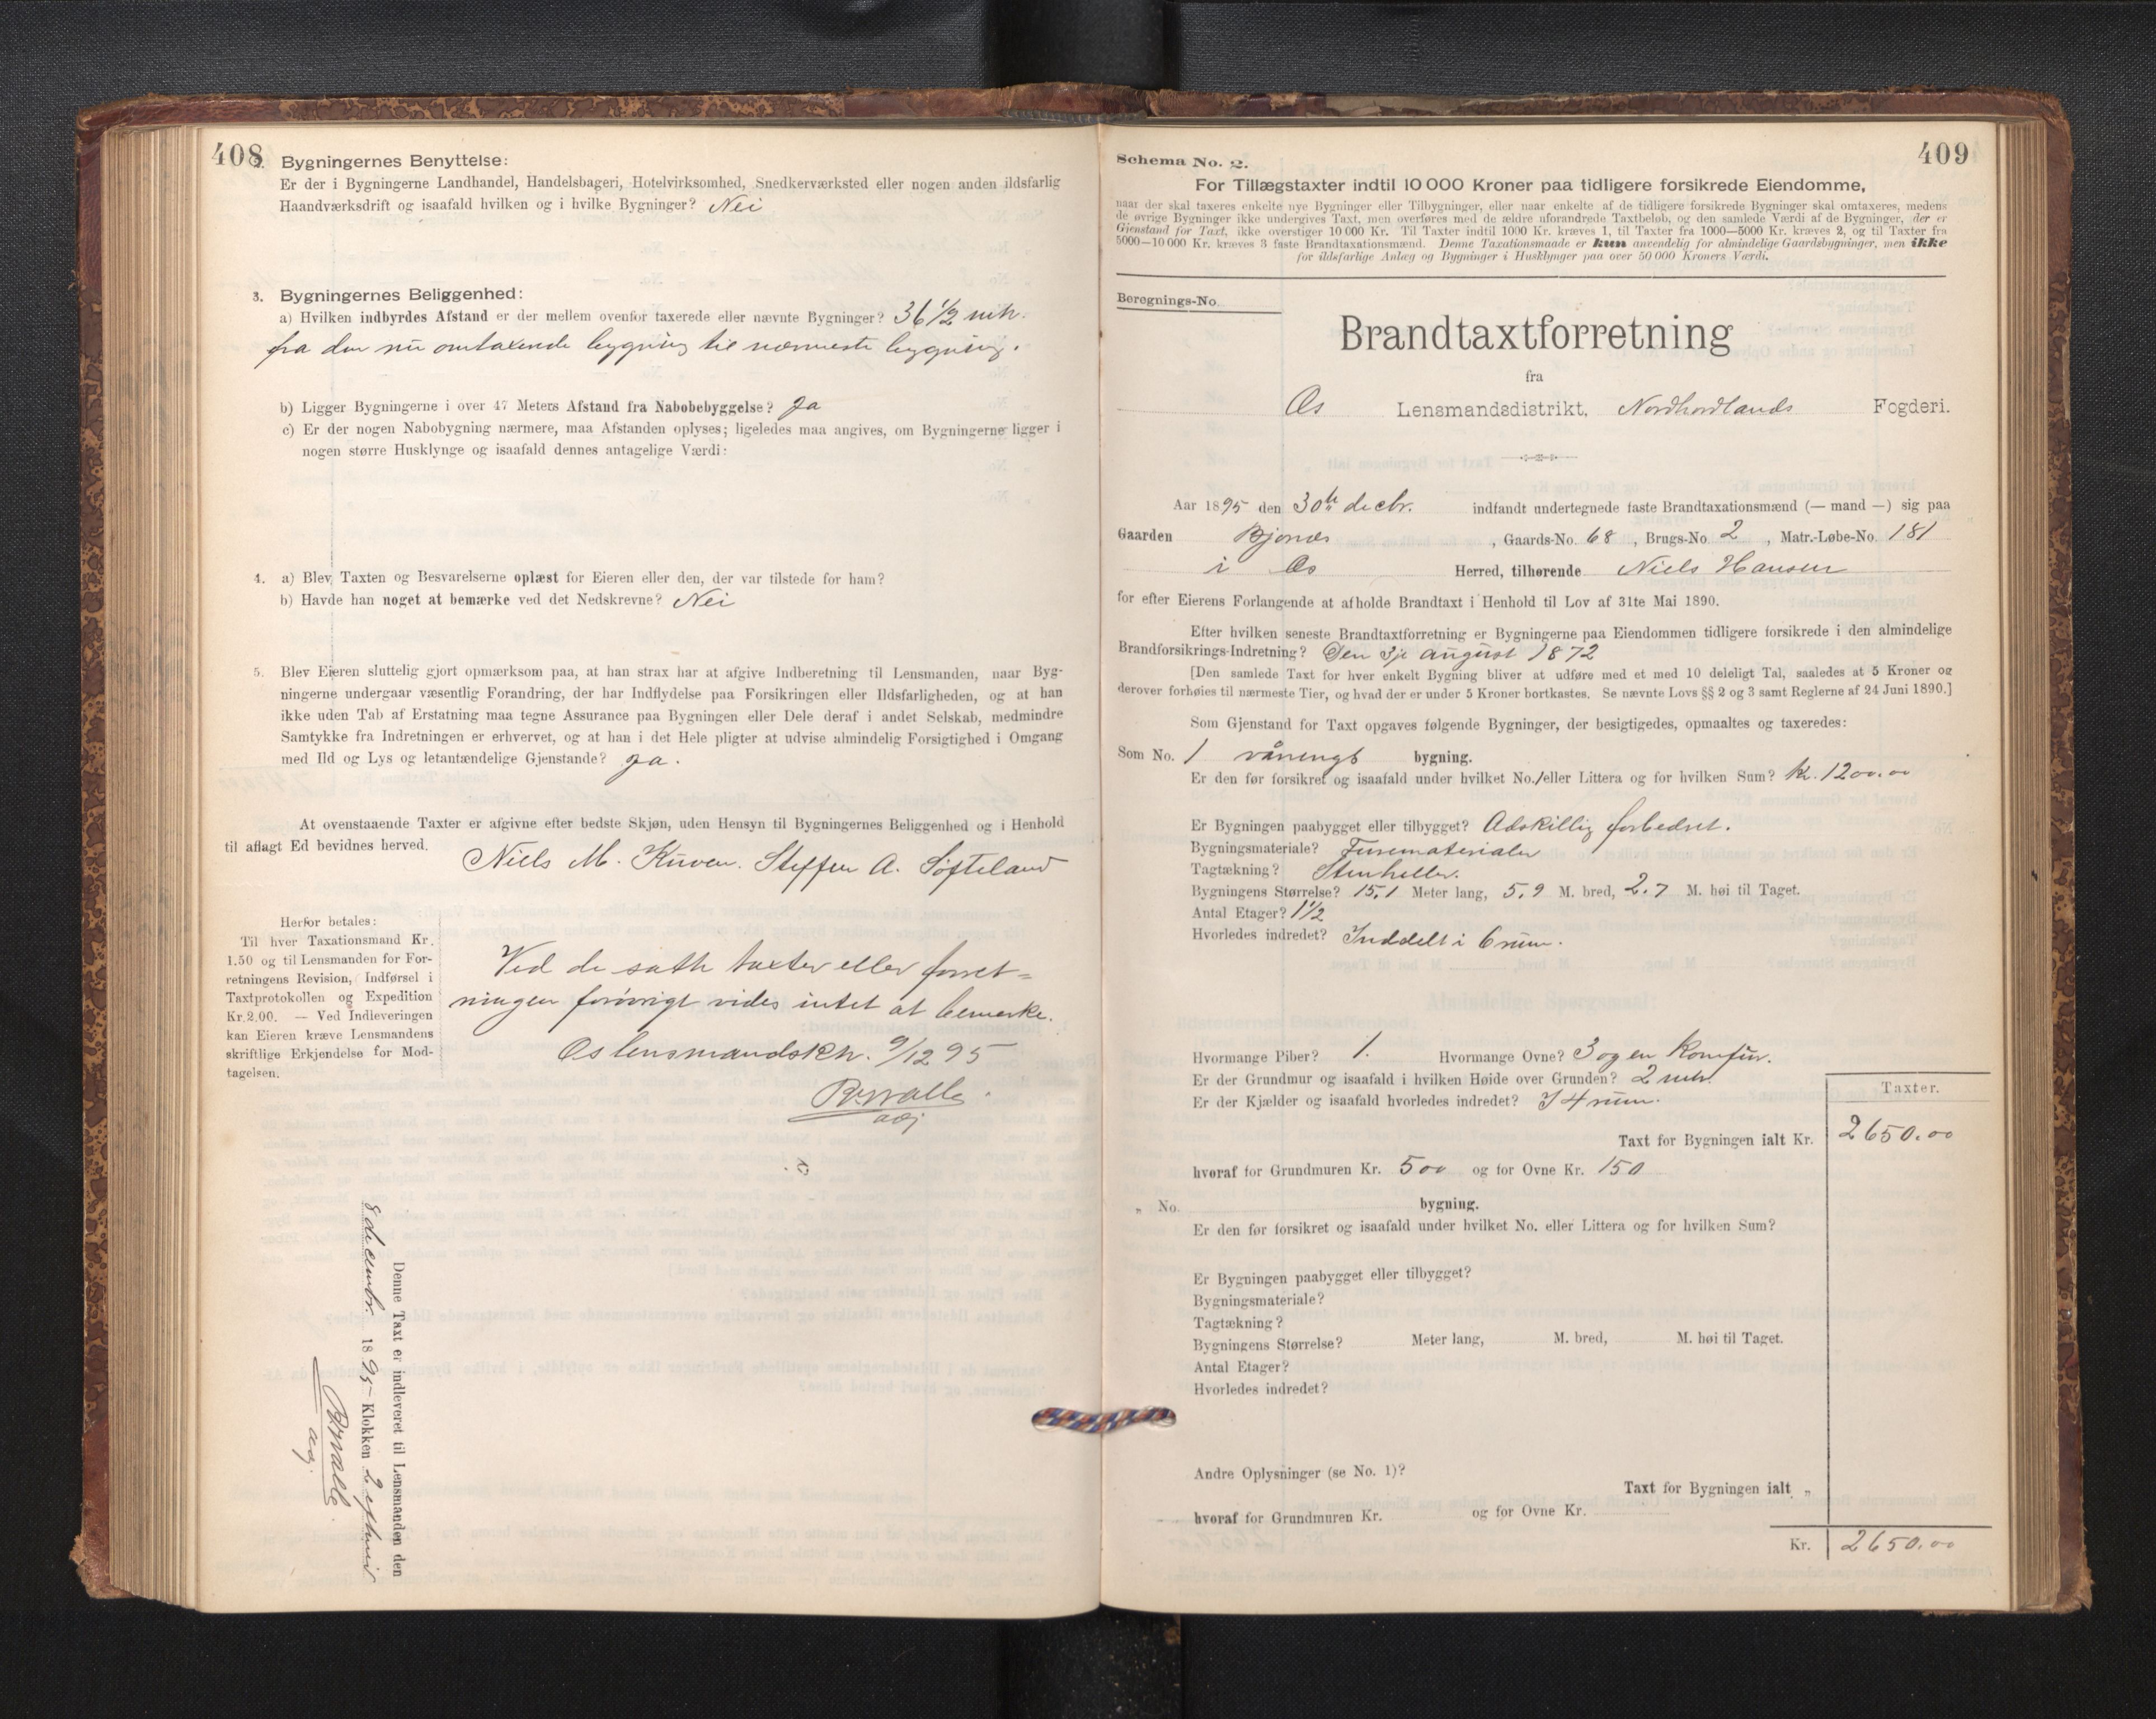 408
2. Bygningernes Benyttelse:
Er der i Bygningerne Landhandel, Handelsbageri, Hotelvirksomhed, Snedkerværksted eller nogen anden ildsfarlig
Haandværksdrift og isaafald hvilken og i hvilke Bygninger? Nei
3. Bygningernes Beliggenhed:
a) Hvilken indbyrdes Afstand er der mellem ovenfor taxerede eller nævnte Bygninger? 36 1/2 mtr.
fra den nu omtaxende bygning til nærmeste bygning.
b) Ligger Bygningerne i over 47 Meters Afstand fra Nabobebyggelse? Ja
c) Er der nogen Nabobygning nærmere, maa Afstanden oplyses; ligeledes maa angives, om Bygningerne ligger i
nogen større Husklynge og isaafald dennes antagelige Værdi:
4. a) Blev Taxten og Besvarelserne oplæst for Eieren eller den, der var tilstede for ham?
b) Havde han noget at bemærke ved det Nedskrevne? Nei
5. Blev Eieren sluttelig gjort opmærksom paa, at han strax har at afgive Indberetning til Lensmanden, naar Byg-
ningerne undergaar væsentlig Forandring, der har Indflydelse paa Forsikringen eller Ildsfarligheden, og at han
ikke uden Tab af Erstatning maa tegne Assurance paa Bygningen eller Dele deraf i andet Selskab, medmindre
Samtykke fra Indretningen er erhvervet, og at han i det Hele pligter at udvise almindelig Forsigtighed i Omgang
med Ild og Lys og letantændelige Gjenstande? Ja.
At ovenstaaende Taxter er afgivne efter bedste Skjøn, uden Hensyn til Bygningernes Beliggenhed og i Henhold
til aflagt Ed bevidnes herved.
Niels M. Kuven. Steffen A. Søfteland
Herfor betales:
Til hver Taxationsmand Kr.
1.50 og til Lensmanden for For-
retningens Revision, Indførsel i
Taxtprotokollen og Expedition
Kr.2.00. — Ved Indleveringen
kan Eieren kræve Lensmandens
skriftlige Erkjendelse for Mod-
tagelsen.
Ved de satte taxter eller forret-
ningen forøvrigt vides intet at bemerke.
Os lensmandsktr. 9/12 95
Denne Taxt er indleveret til Lensmanden den
8 decembr. 1895 Klokken 2 efthmid
409
Schema No. 2.
For Tillægstaxter indtil 10 000 Kroner paa tidligere forsikrede Eiendomme,
naar der skal taxeres enkelte nye Bygninger eller Tilbygninger, eller naar enkelte af de tidligere forsikrede Bygninger skal omtaxeres, medens
de øvrige Bygninger ikke undergives Taxt, men overføres med de ældre uforandrede Taxtbeløb, og den samlede Værdi af de Bygninger, der er
Gjenstand for Taxt, ikke overstiger 10 000 Kr. Til Taxter indtil 1000 Kr. kræves 1, til Taxter fra 1000—5000 Kr. kræves 2, og til Taxter fra
5000—10 000 Kr. kræves 3 faste Brandtaxationsmænd. Denne Taxationsmaade er kun anvendelig for almindelige Gaardsbygninger, men ikke
for ildsfarlige Anlæg og Bygninger i Husklynger paa over 50 000 Kroners Værdi.
Beregnings-No.
Brandtaxtforretning
fra
Os Lensmandsdistrikt, Nordhordlands Fogderi.
Aar 1895 den 30te decbr. indfandt undertegnede faste Brandtaxationsmænd (— mand —) sig paa
Gaarden Bjønæs, Gaards-No. 68, Brugs-No. 2, Matr.-Løbe-No. 181
i Os Herred, tilhørende Niels Hansen
for efter Eierens Forlangende at afholde Brandtaxt i Henhold til Lov af 31te Mai 1890.
Efter hvilken seneste Brandtaxtforretning er Bygningerne paa Eiendommen tidligere forsikrede i den almindelige
Brandforsikrings-Indretning? Den 3je august 1872
[Den samlede Taxt for hver enkelt Bygning bliver at udføre med et med 10 deleligt Tal, saaledes at 5 Kroner og
derover forhøies til nærmeste Tier, og hvad der er under 5 Kroner bortkastes. Se nævnte Lovs §§ 2 og 3 samt Reglerne af 24 Juni 1890.]
Som Gjenstand for Taxt opgaves følgende Bygninger, der besigtigedes, opmaaltes og taxeredes:
Som No. 1 vånings bygning.
Er den før forsikret og isaafald under hvilket No. eller Littera og for hvilken Sum? 1 kr. 1200.00
Er Bygningen paabygget eller tilbygget? Adskillig forbedret.
Bygningsmateriale? Furematerialer
Tagtækning? Stenheller.
Bygningens Størrelse? 15,1 Meter lang, 5,9 M. bred, 2,7 M. høi til Taget.
Antal Etager? 1 1/2
Hvorledes indredet? Inddelt i 6 rum.
Hvormange Piber? 1. Hvormange Ovne? 3 og en Komfur.
Er der Grundmur og isaafald i hvilken Høide over Grunden? 2 mtr.
Er der Kjælder og isaafald hvorledes indredet? I 4 rum.
Taxter.
Taxt for Bygningen ialt Kr. 2650.00
hvoraf for Grundmuren Kr. 500 og for Ovne Kr. 150
„ No. bygning.
Er den før forsikret og isaafald under hvilket No. eller Littera og for hvilken Sum?
Er Bygningen paabygget eller tilbygget?
Bygningsmateriale?
Tagtækning?
Bygningens Størrelse? Meter lang, M. bred, M. høi til Taget.
Antal Etager?
Hvorledes indredet?
Andre Oplysninger (se No. 1)?
Taxt for Bygningen ialt „
hvoraf for Grundmuren Kr. og for Ovne Kr.
Kr. 2650.00